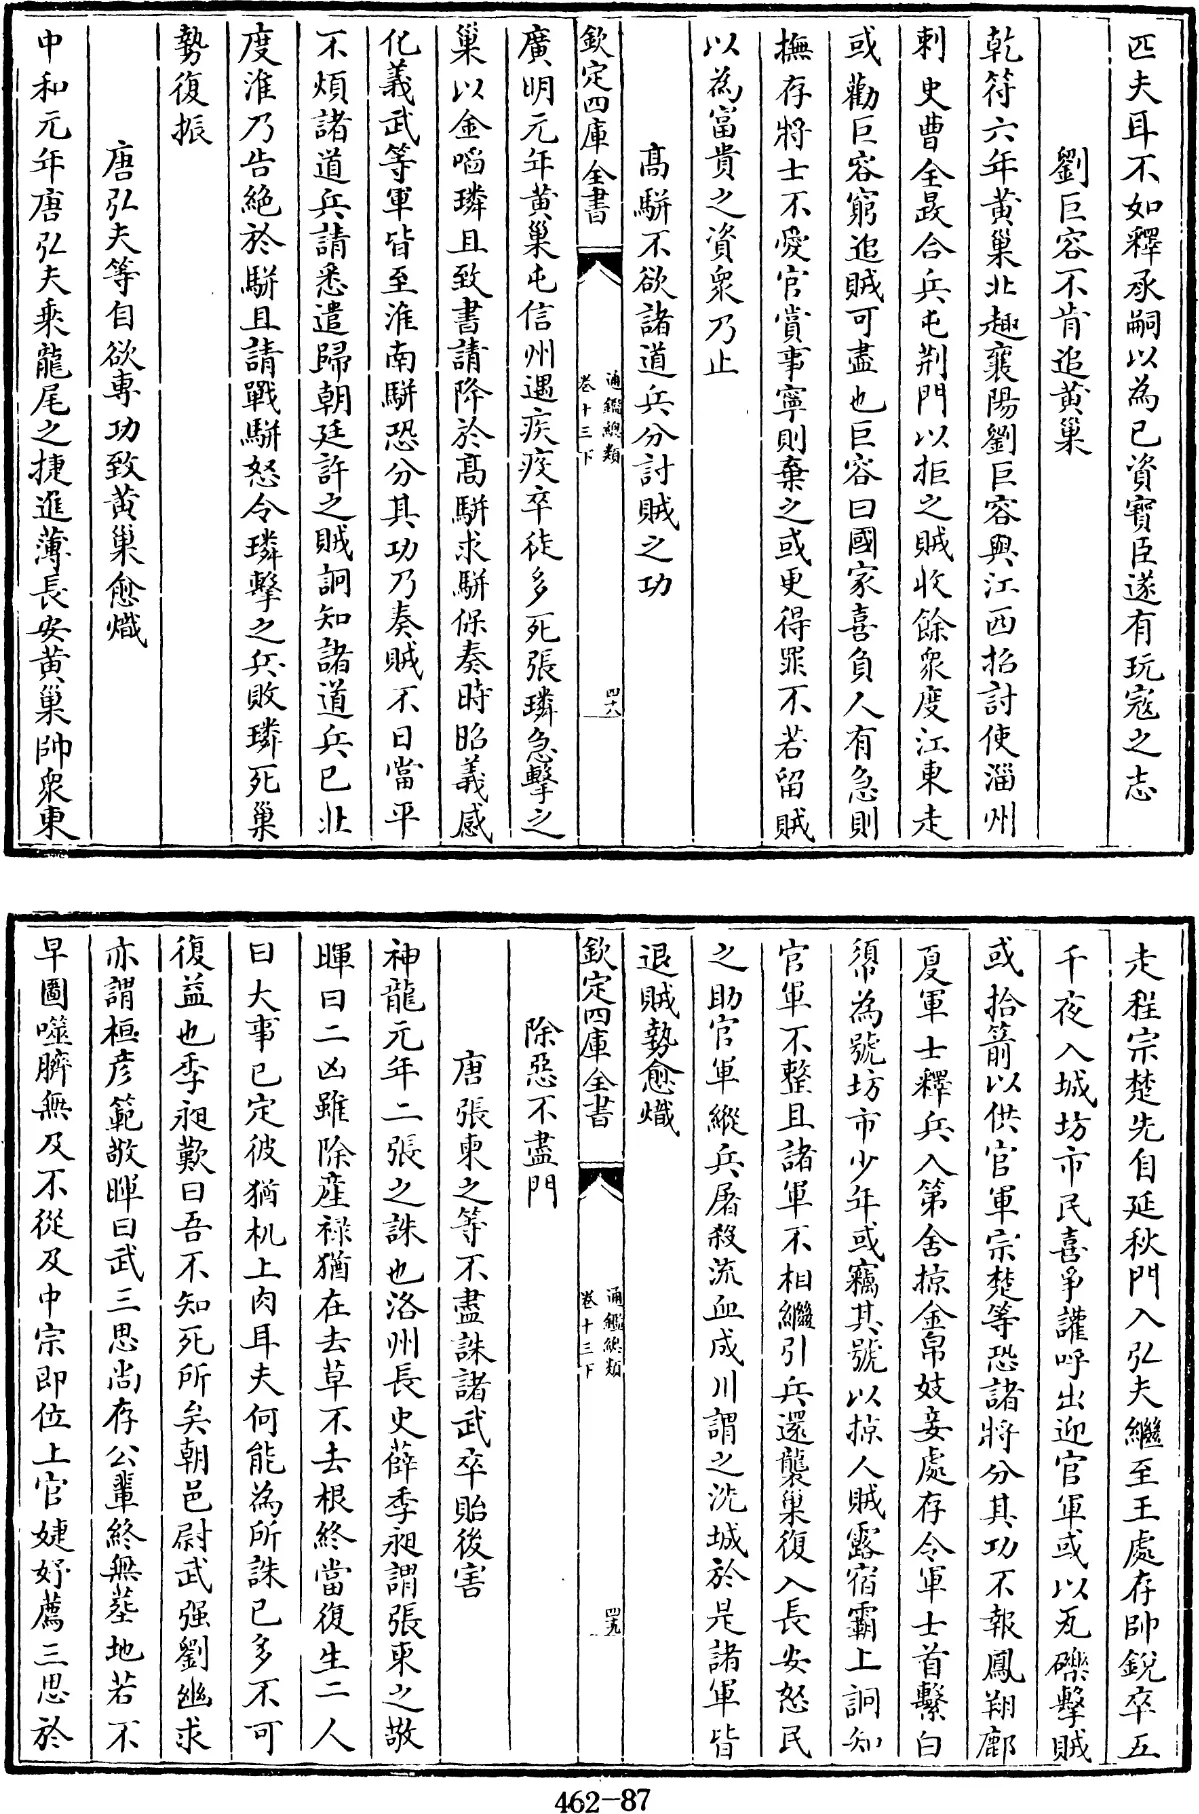 匹夫耳不如釋承嗣以為己資寶臣遂有玩寇之志
劉巨容不肯追黄巢
乾符六年黄巢北趣襄陽劉巨容與江西招討使淄州
刺史曹全晸合兵屯荆門以拒之賊收餘衆度江東走
或勸巨容窮追賊可盡也巨容曰國家喜負人有急則
撫存將士不愛官賞事寧則棄之或更得罪不若留賊
以為富貴之資衆乃止
高駢不欲諸道兵分討賊之功
欽定四庫全書
通鑑總類
卷十三下
四十八
廣明元年黄巢屯信州遇疾疫卒徒多死張璘急擊之
巢以金啗璘且致書請降於高駢求駢保奏時昭義感
化義武等軍皆至淮南駢恐分其功乃奏賊不日當平
不煩諸道兵請悉遣歸朝廷許之賊詗知諸道兵已北
度淮乃告絶於駢且請戰駢怒令璘擊之兵敗璘死巢
勢復振
唐弘夫等自欲專功致黄巢愈熾
中和元年唐弘夫乘龍尾之捷進薄長安黄巢帥衆東
走程宗楚先自延秋門入弘夫繼至王處存帥銳卒五
千夜入城坊市民喜爭讙呼出迎官軍或以瓦礫擊賊
或拾箭以供官軍宗楚等恐諸將分其功不報鳳翔鄜
夏軍士釋兵入第舍掠金帛妓妾處存令軍士首繫白
𢄼為號坊市少年或竊其號以掠人賊露宿霸上詗知
官軍不整且諸軍不相繼引兵還襲巢復入長安怒民
之助官軍縱兵屠殺流血成川謂之洗城於是諸軍皆
退賊勢愈熾
欽定四庫全書
通鑑總類
卷十三下
四十九
除惡不盡門
唐張柬之等不盡誅諸武卒貽後害
神龍元年二張之誅也洛州長史薛季昶謂張柬之敬
暉曰二凶雖除産禄猶在去草不去根終當復生二人
曰大事已定彼猶机上肉耳夫何能為所誅已多不可
復益也季昶歎曰吾不知死所矣朝邑尉武强劉幽求
亦謂桓彦範敬暉曰武三思尚存公輩終無塟地若不
早圖噬臍無及不從及中宗即位上官婕妤薦三思於
462-87